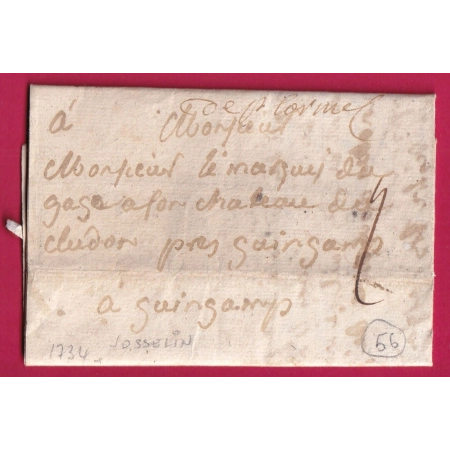 De ploermel
à Monsieur
Monsieur le marquis du
gage a son chateau du
cludon pres guingamp
à guingamp
1734 JOSSELIN
56